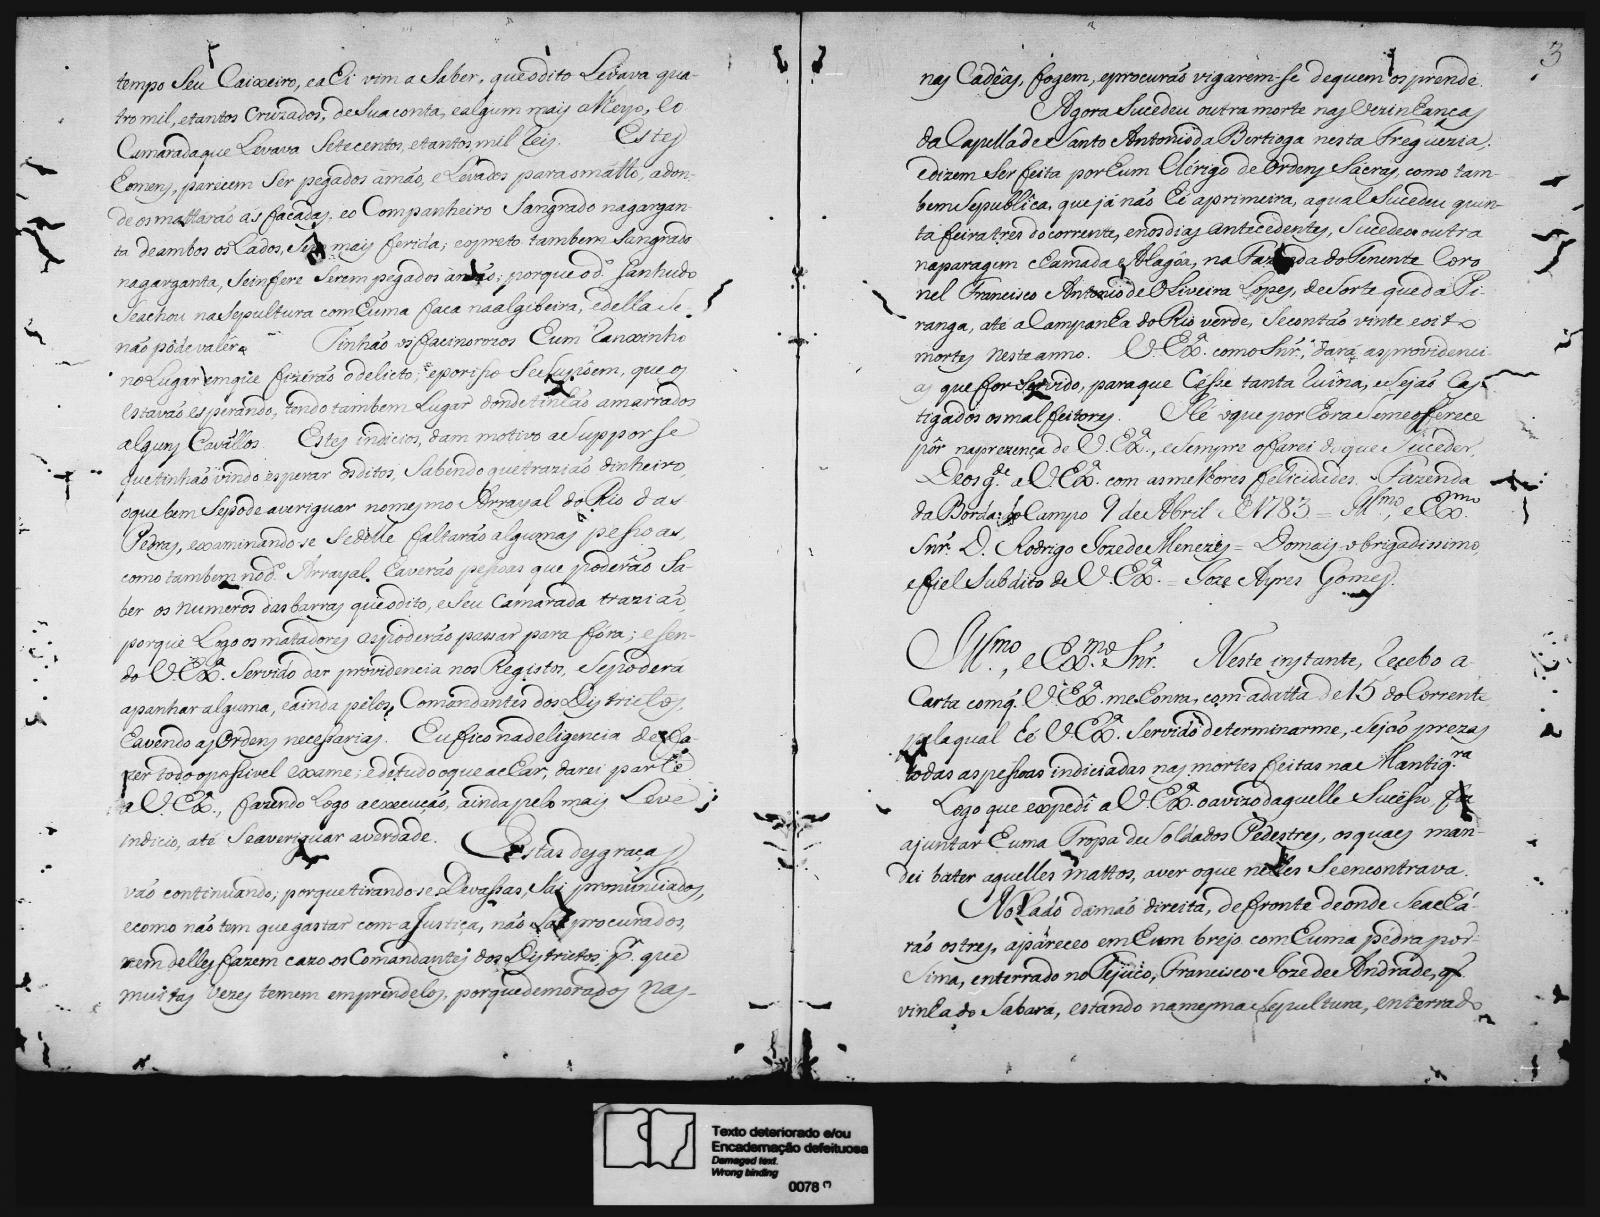 tempo Seu Caixeiro, eaEi vim a Saber, queodito Levava qua-
tro mil, etantos Cruzados, deSuaconta, ealgum mais alheyo, Eo
Camarada que Levava Setecentos, etantos mil Reis. Estes
Eomens, parecem Ser pegados ámaõ, e Levados para omátto, adon-
de os mattaraõ ás facadas, eo Companheiro Sangrado nagargan-
ta deambos os Lados, Sem mais ferida; eopreto tambem Sangrado
nagarganta, Seinfere Serem pegados ámaõ; porque o d.º Santudo
Seachou naSepultura com Euma faca naalgibeira, edella Se
naõ pôde valer. Tinhaõ os facinorozos Eum Ranxinho
no Lugar emque fizéraõ odelicto, eporisso Sesupoem, que os
estavaõ esperando, tendo tambem Lugar donde tinEaõ amarrados
alguns Cavállos. Estes indicios, dam motivo aSuppor se
quetinhaõ vindo esperar osditos, Sabendo quetraziaõ dinheiro,
oque bem Sepode averiguar nomesmo Arrayal do Rio das
Pedras, examinando se Sedelle faltaraõ algumas pessoas,
como tambem nod.º Arrayal Eaverás pessoas que poderáõ Sa-
ber os numeros das barras queodito, eSeu Camarada traziaõ,
porque Logo os matadores aspoderáõ passar para fóra; e Sen-
do V. Ex.ª Servido dar providencia nos Registos, Sepoderá
apanhar alguma, eainda pelos Comandantes dos Districtos,
Eavendo as Ordens necessarias. Eu fico nadeligencia defa-
zer todo opossivel exame; edetudo oque acEar, darei parte
a V. Ex.ª, fazendo Logo aexecuçaõ, ainda pelo mais Leve
indicio, até Seaveriguar averdade. Estas desgraças
vaõ continuando; porque tirando se Devassas, Sai pronunciados,
ecomo naõ tem que gastar com aJustiça, naõ Saõ procurados,
nem delles fazem cazo os Comandantes dos Districtos, p.r que
muitas vezes temem emprendelos, porque demorados nas-
3
nas Cadêas, fogem, eprocuraõ vigarem-se dequem os prende.
Agora Sucedeu outra morte nas VezinEanças
da Capella de Santo Antonio da Bertioga nesta Freguezia,
edizem Ser feita por Eum Clérigo de Ordens Sácras, como tam-
bem Sepublíca, que já naõ Eé aprimeira, aqual Sucedeu quin-
ta feira três docorrente, enosdias antecedentes, Sucedeu outra
naparagem cEamada a Alagôa, na Fazenda do Tenente Coro
nel Francisco Antonio de OLiveira Lopes, deSorte queda Pi-
ranga, até a CampanEa do Rio verde, Secontaõ vinte eoito
mortes neste anno. V. Ex.ª como Snr.', dará asprovidenci-
as que for Servido, paraque Césse tanta Ruîna, eSejaõ Cas-
tigados os mal feitores. Hé oque por Eora Semeofferece
pôr naprezença de V. Ex.ª, eSempre ofarei doque Suceder.
Deos g.de a V. Ex.ª com as melhores felicidades. Fazenda
da Borda do Campo 9 de Abril de 1783 = Ill.mo, e Ex.mo
Snr. D. Rodrigo Joze de Menezes = Domais obrigadissimo,
efiel Subdito de V. Ex.ª = Joze Ayres Gomes.
Ill.mo, e Ex.mo Snr. Neste instante, Recebo a
Carta com q. V. Ex.ª me Eonra, com adatta de 15 do Corrente,
pelaqual Eé V. Ex.ª Servido determinarme, Sejaõ prezas
todas aspessoas indiciadas nas mortes feitas na Mantiq.ra
Logo que expedî a V. Ex.ª oavizo daquelle Sucésso, fiz
ajuntar Euma Tropa de Soldados Pedestres, osquaes man-
dei bater aquelles mattos, aver oque nelles Seencontrava.
No Lado damaõ direita, defronte deonde SeacEá-
raõ os tres, apáreceo em Eum brejo com Euma pédra por
Sima, enterrado no Tejuco, Francisco Joze de Andrade, q.
vinEa do Sabará, estando namesma Sepultura, enterrado
Texto deteriorado e/ou
Encadernação defeituosa
Damaged text.
Wrong binding
0078